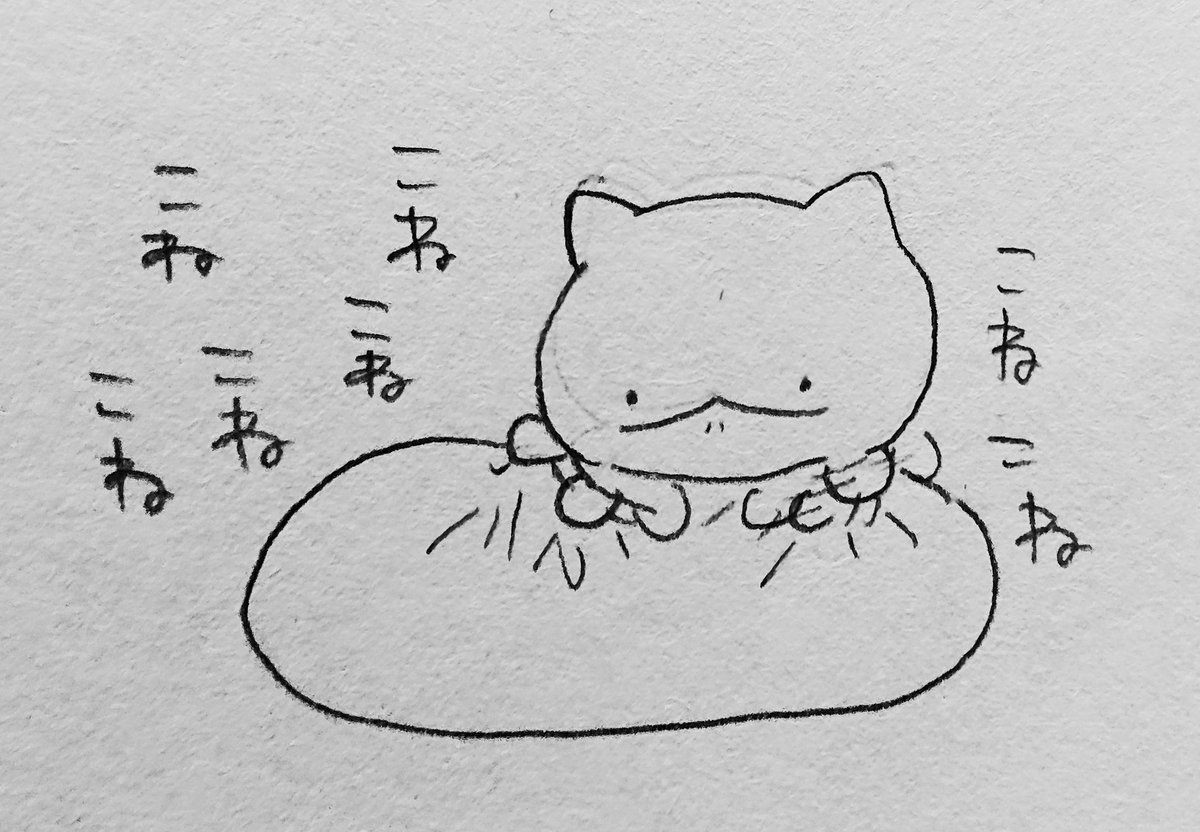 こね
こね
こね
こね
こね
こね
こね